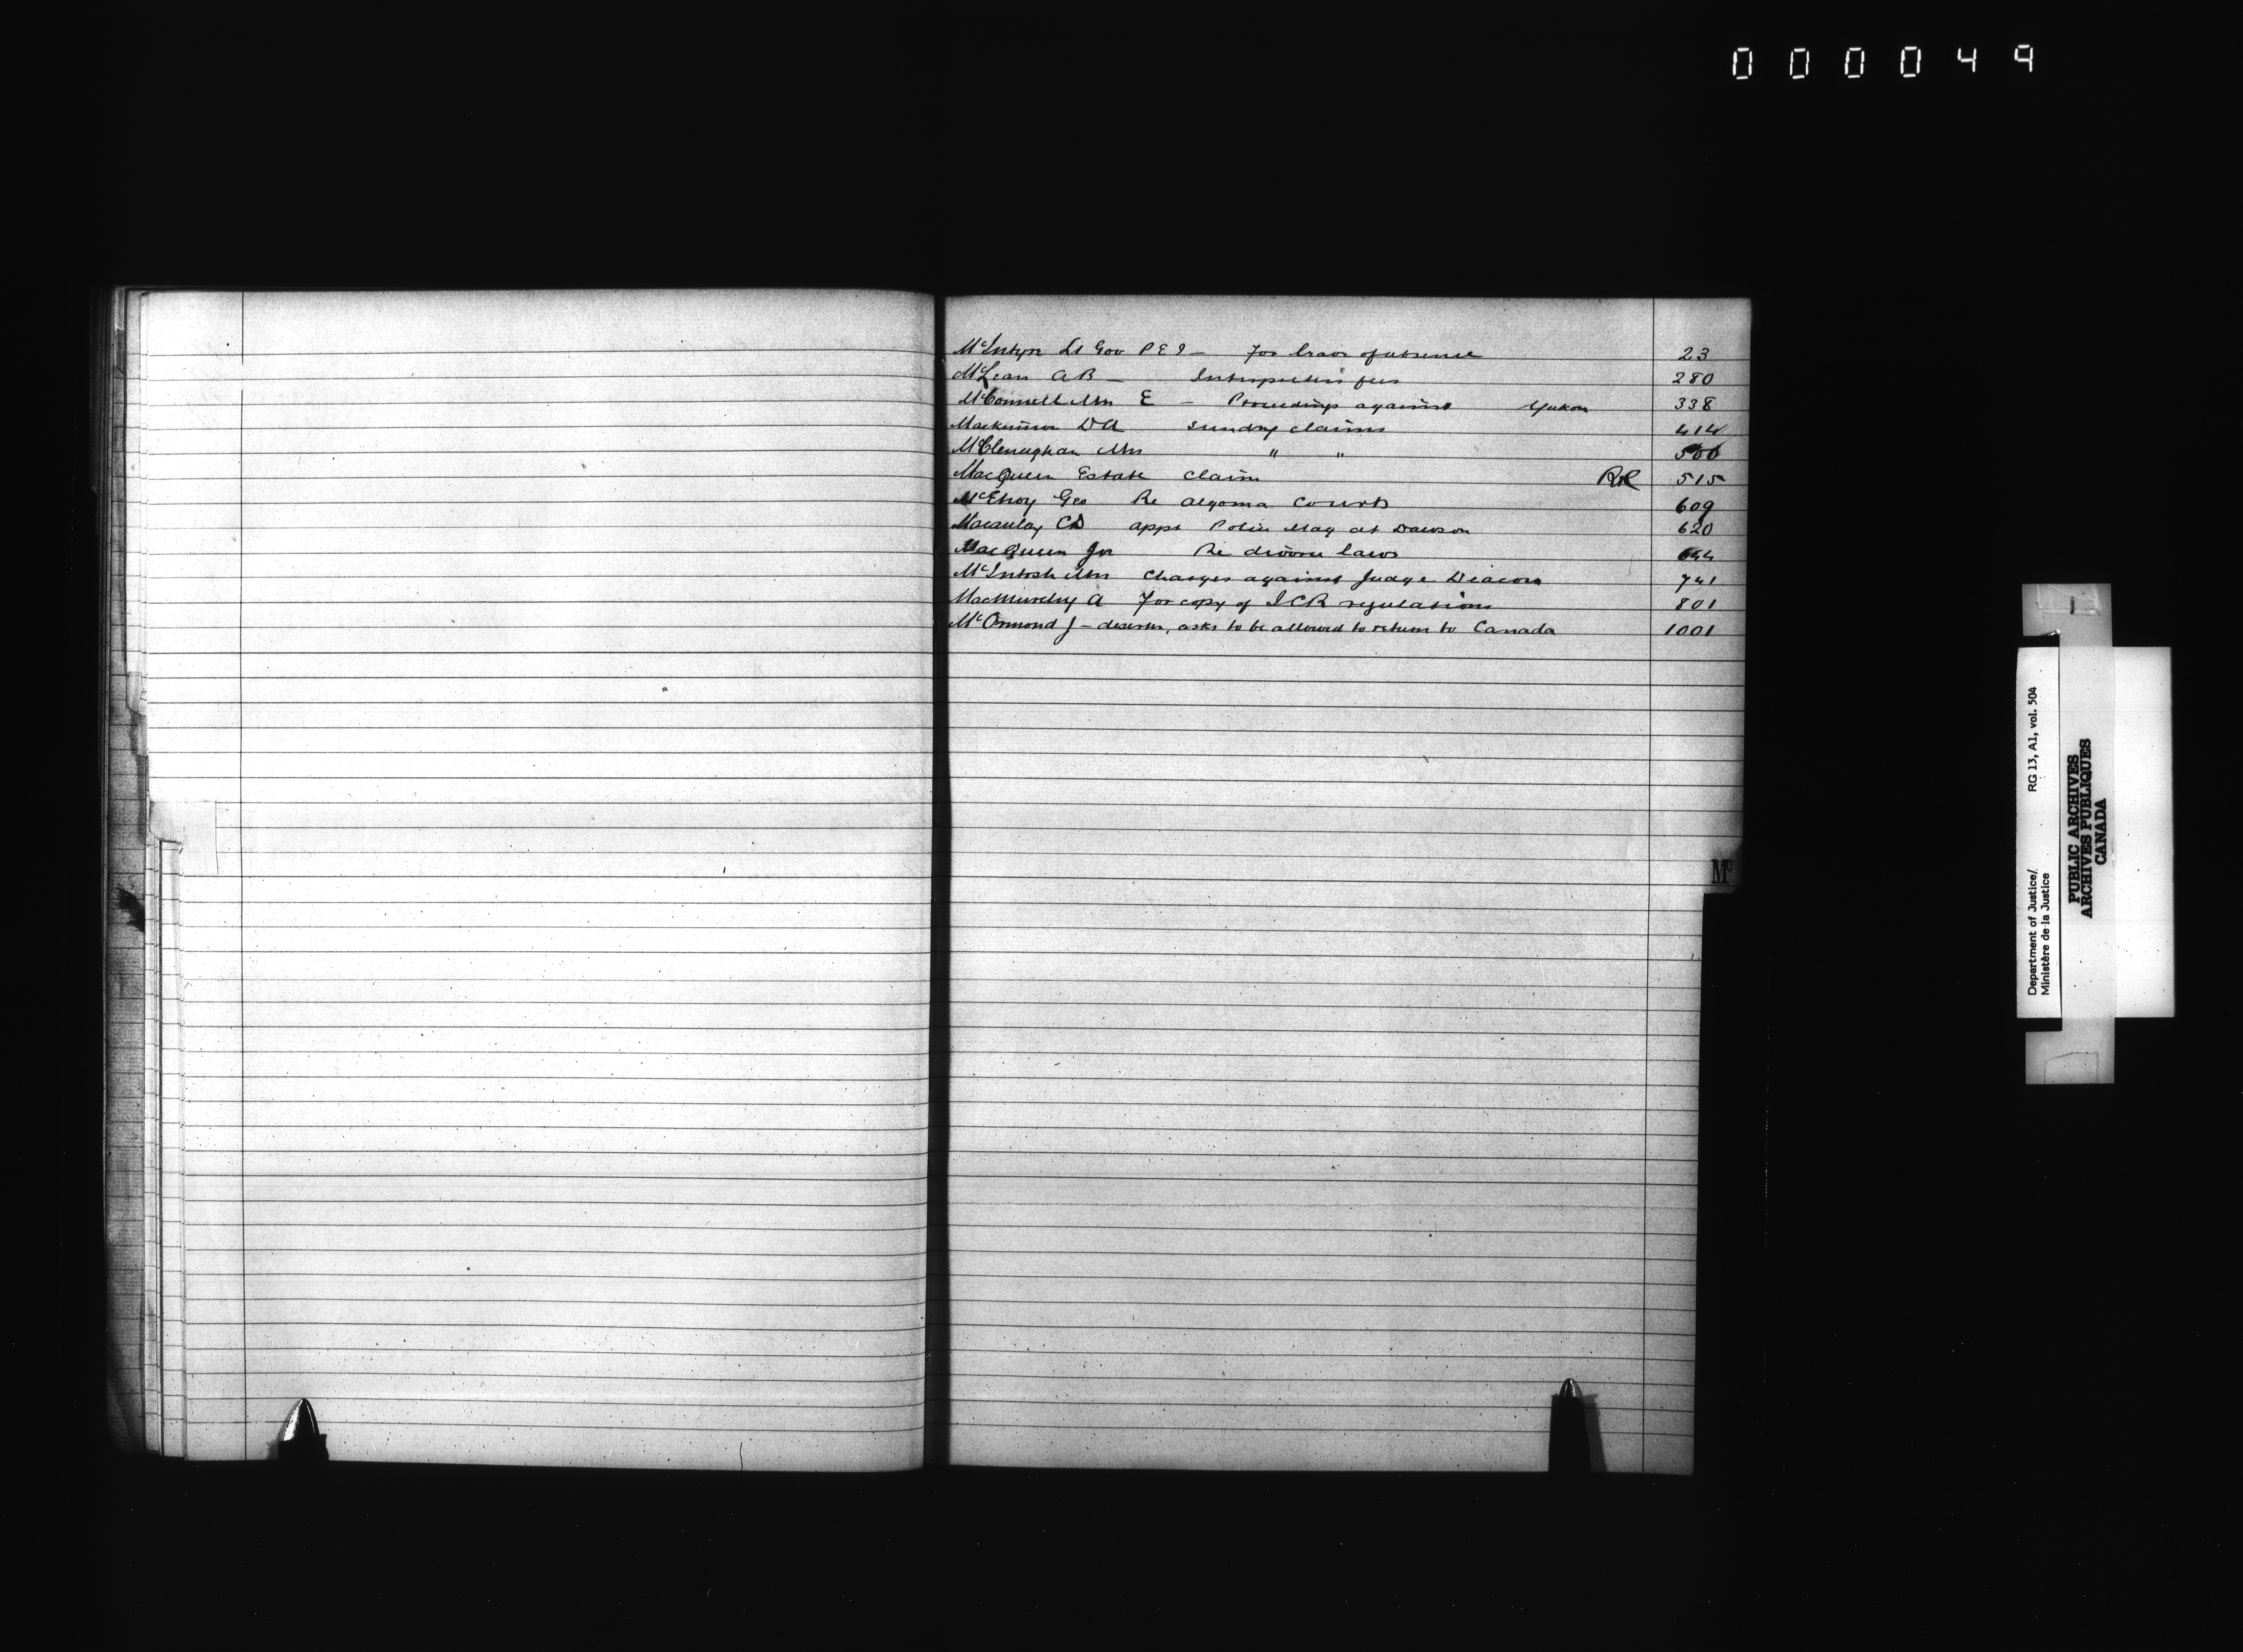 000049
McIntyre Lt Gov P E I — For leave of absence 23
McLean A B — Interpreters fees 280
McConnell Mrs E — Proceedings against Yukon 338
Mackinnon D A Sundry claims 414
McClenaghan Mrs " " 500
MacQueen Estate claim RR 515
McElroy Geo Re Algoma Courts 609
Macaulay C D appt Police Mag at Dawson 620
MacQueen Jos Re divorce laws 644
McIntosh Mrs Charges against Judge Deacon 741
MacMurchy A For copy of I C R regulations 801
McOrmond J — deserter, asks to be allowed to return to Canada 1001
Mc
Department of Justice/ RG 13, A1, vol. 504
Ministère de la Justice
PUBLIC ARCHIVES
ARCHIVES PUBLIQUES
CANADA